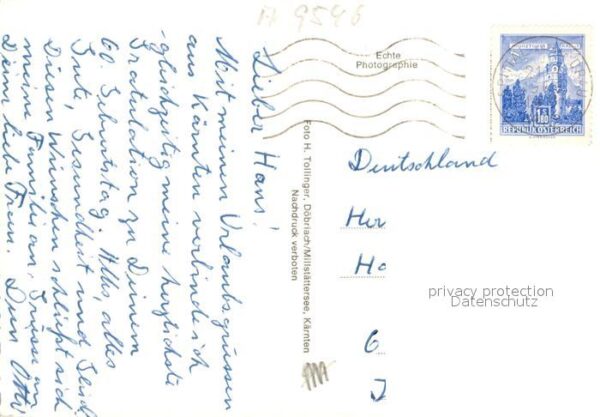 A 9546
Lieber Hans!
Mit meinen Urlaubsgrüssen
aus Kärnten verbinde ich
gleichzeitig meine herzlichste
Gratulation zu Deinem
60. Geburtstag. Alles, alles
Gute, Gesundheit und
Diesen Wünschen schließt sich
meine Familie an. Grüsse an
Deine liebe Frau. Dein Otto
Echte
Photographie
Foto H. Tollinger, Döbriach/Millstättersee, Kärnten
Nachdruck verboten
REPUBLIK ÖSTERREICH
Deutschland
Her
Ha
privacy protection
Datenschutz